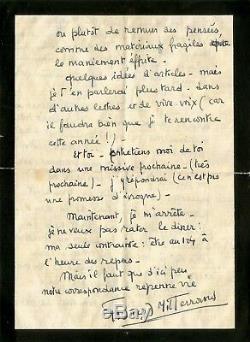 ou plutôt de remuer des pensées,
comme des matériaux fragiles
le maniement effrite.
quelques idées d'articles - mais
je t'en parlerai plus tard. Dans
d'autres lettres et de vive-voix (car
il faudra bien que je te rencontre
cette année !) -
Et toi - entretiens moi de toi
dans une missive prochaine - (très
prochaine) - j'y répondrai (ce n'est pas
une promesse d'ivrogne) -
Maintenant, je m'arrête -
je ne veux pas rater le dîner :
ma seule contrainte : être au 104 à
l'heure des repas -
Mais il faut que d'ici peu
notre correspondance reprenne vie
Mitterrand